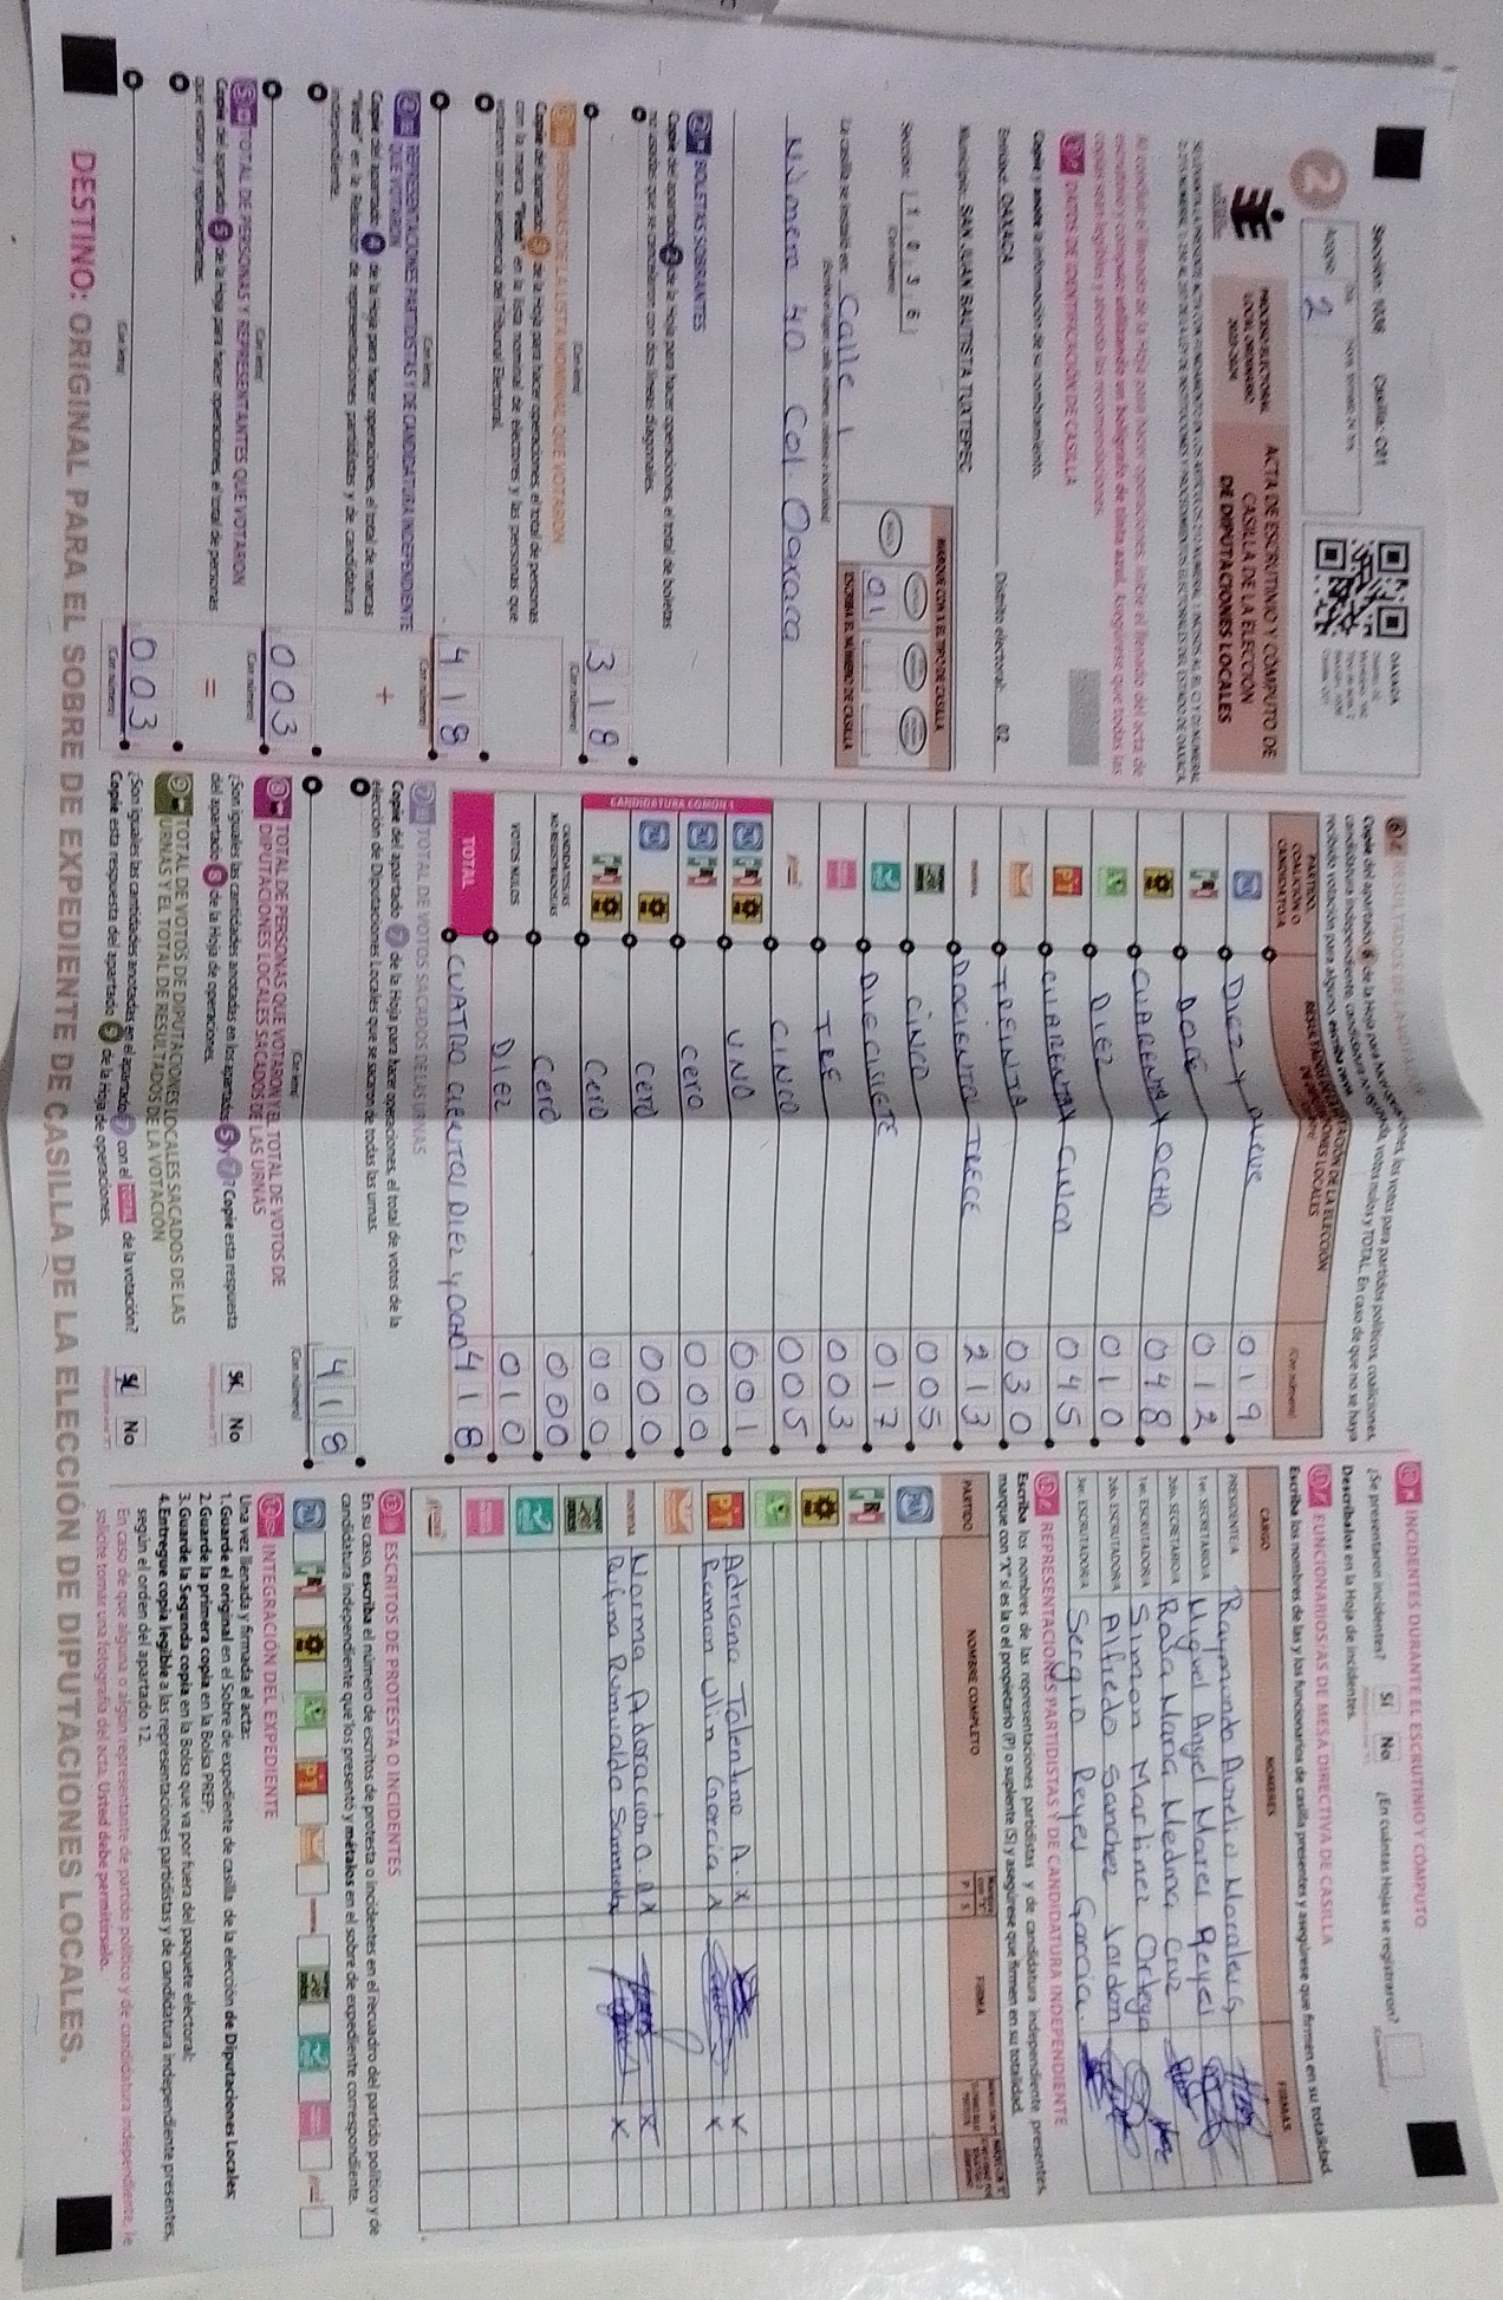 Sección: 1036 Casilla: C01
2
Acopio 2
OAXACA
PROCESO ELECTORAL
LOCAL ORDINARIO
2023-2024
ACTA DE ESCRUTINIO Y CÓMPUTO DE
CASILLA DE LA ELECCIÓN
DE DIPUTACIONES LOCALES
Al concluir el llenado de la Hoja para hacer operaciones, inicie el llenado del acta de
escrutinio y cómputo utilizando un bolígrafo de tinta azul. Asegúrese que todas las
copias sean legibles y atienda las recomendaciones.
1 DATOS DE IDENTIFICACIÓN DE CASILLA
Copie y anote la información de su nombramiento.
Entidad: OAXACA Distrito electoral: 02
Municipio: SAN JUAN BAUTISTA TUXTEPEC
Sección: 1 0 3 6
(Con número)
MARQUE CON X EL TIPO DE CASILLA
01
ESCRIBA EL NÚMERO DE CASILLA
La casilla se instaló en: Calle 1
Número 40 Col. Oaxaca
2 BOLETAS SOBRANTES
Copie del apartado 2 de la Hoja para hacer operaciones, el total de boletas
no usadas que se cancelaron con dos líneas diagonales.
318
(Con letra) (Con número)
3 PERSONAS DE LA LISTA NOMINAL QUE VOTARON
Copie del apartado 3 de la Hoja para hacer operaciones, el total de personas
con la marca "Votó" en la lista nominal de electores y las personas que
votaron con su sentencia del Tribunal Electoral.
418
(Con letra) (Con número)
4 REPRESENTACIONES PARTIDISTAS Y DE CANDIDATURA INDEPENDIENTE
QUE VOTARON
+
Copie del apartado 4 de la Hoja para hacer operaciones, el total de marcas
"Votó" en la Relación de representaciones partidistas y de candidatura
independiente.
003
(Con letra) (Con número)
5 TOTAL DE PERSONAS Y REPRESENTANTES QUE VOTARON
=
Copie del apartado 5 de la Hoja para hacer operaciones, el total de personas
que votaron y representantes.
003
(Con letra) (Con número)
6 RESULTADOS DE LA VOTACIÓN
PARTIDO,
COALICIÓN O
CANDIDATO/A
(Con número)
PAN DIEZ Y NUEVE 019
PRI DOCE 012
PRD CUARENTA Y OCHO 048
DIEZ 010
PT CUARENTA Y CINCO 045
TREINTA 030
morena DOCIENTOS TRECE 213
CINCO 005
DIECISIETE 017
TRES 003
CINCO 005
CANDIDATURA COMÚN 1
PAN PRI PRD UNO 001
PAN PRI cero 000
PAN PRD cero 000
PRI PRD cero 000
CANDIDATOS/AS
NO REGISTRADOS/AS cero 000
VOTOS NULOS DIEZ 010
TOTAL CUATRO CIENTOS DIEZ Y OCHO 418
7 TOTAL DE VOTOS SACADOS DE LAS URNAS
Copie del apartado 7 de la Hoja para hacer operaciones, el total de votos de la
elección de Diputaciones Locales que se sacaron de todas las urnas.
418
(Con letra) (Con número)
8 TOTAL DE PERSONAS QUE VOTARON Y EL TOTAL DE VOTOS DE
DIPUTACIONES LOCALES SACADOS DE LAS URNAS
¿Son iguales las cantidades anotadas en los apartados 5 y 7? Copie esta respuesta
del apartado 8 de la Hoja de operaciones.
Sí No
9 TOTAL DE VOTOS DE DIPUTACIONES LOCALES SACADOS DE LAS
URNAS Y EL TOTAL DE RESULTADOS DE LA VOTACIÓN
¿Son iguales las cantidades anotadas en el apartado 7 con el TOTAL de la votación?
Copie esta respuesta del apartado 9 de la Hoja de operaciones.
Sí No
10 INCIDENTES DURANTE EL ESCRUTINIO Y CÓMPUTO
¿Se presentaron incidentes? Sí No ¿En cuántas Hojas se registraron?
Descríbalos en la Hoja de incidentes.
11 FUNCIONARIOS/AS DE MESA DIRECTIVA DE CASILLA
Escriba los nombres de las y los funcionarios de casilla presentes y asegúrese que firmen en su totalidad.
CARGO NOMBRES FIRMAS
PRESIDENTE/A Raymundo Aurelio Morales G
1er. SECRETARIO/A Miguel Angel Mares Reyes
2do. SECRETARIO/A Rosa Maria Medina Cruz
1er. ESCRUTADOR/A Simon Martinez Ortega
2do. ESCRUTADOR/A Alfredo Sanchez
3er. ESCRUTADOR/A Sergio Reyes Garcia.
12 REPRESENTACIONES PARTIDISTAS Y DE CANDIDATURA INDEPENDIENTE
Escriba los nombres de las representaciones partidistas y de candidatura independiente presentes,
marque con "X" si es la o el propietario (P) o suplente (S) y asegúrese que firmen en su totalidad.
PARTIDO NOMBRE COMPLETO P S FIRMA
Adriana Tolentino A. X X
PT Ramon Ulin Garcia X X
morena Norma Adoracion A. A X X
Rufina Rumualdo X
13 ESCRITOS DE PROTESTA O INCIDENTES
En su caso, escriba el número de escritos de protesta o incidentes en el recuadro del partido político y de
candidatura independiente que los presentó y métalos en el sobre de expediente correspondiente.
14 INTEGRACIÓN DEL EXPEDIENTE
Una vez llenada y firmada el acta:
1.Guarde el original en el Sobre de expediente de casilla de la elección de Diputaciones Locales;
2.Guarde la primera copia en la Bolsa PREP;
3.Guarde la Segunda copia en la Bolsa que va por fuera del paquete electoral;
4.Entregue copia legible a las representaciones partidistas y de candidatura independiente presentes,
según el orden del apartado 12.
En caso de que alguna o algún representante de partido político y de candidatura independiente, le
solicite tomar una fotografía del acta. Usted debe permitírselo.
DESTINO: ORIGINAL PARA EL SOBRE DE EXPEDIENTE DE CASILLA DE LA ELECCIÓN DE DIPUTACIONES LOCALES.